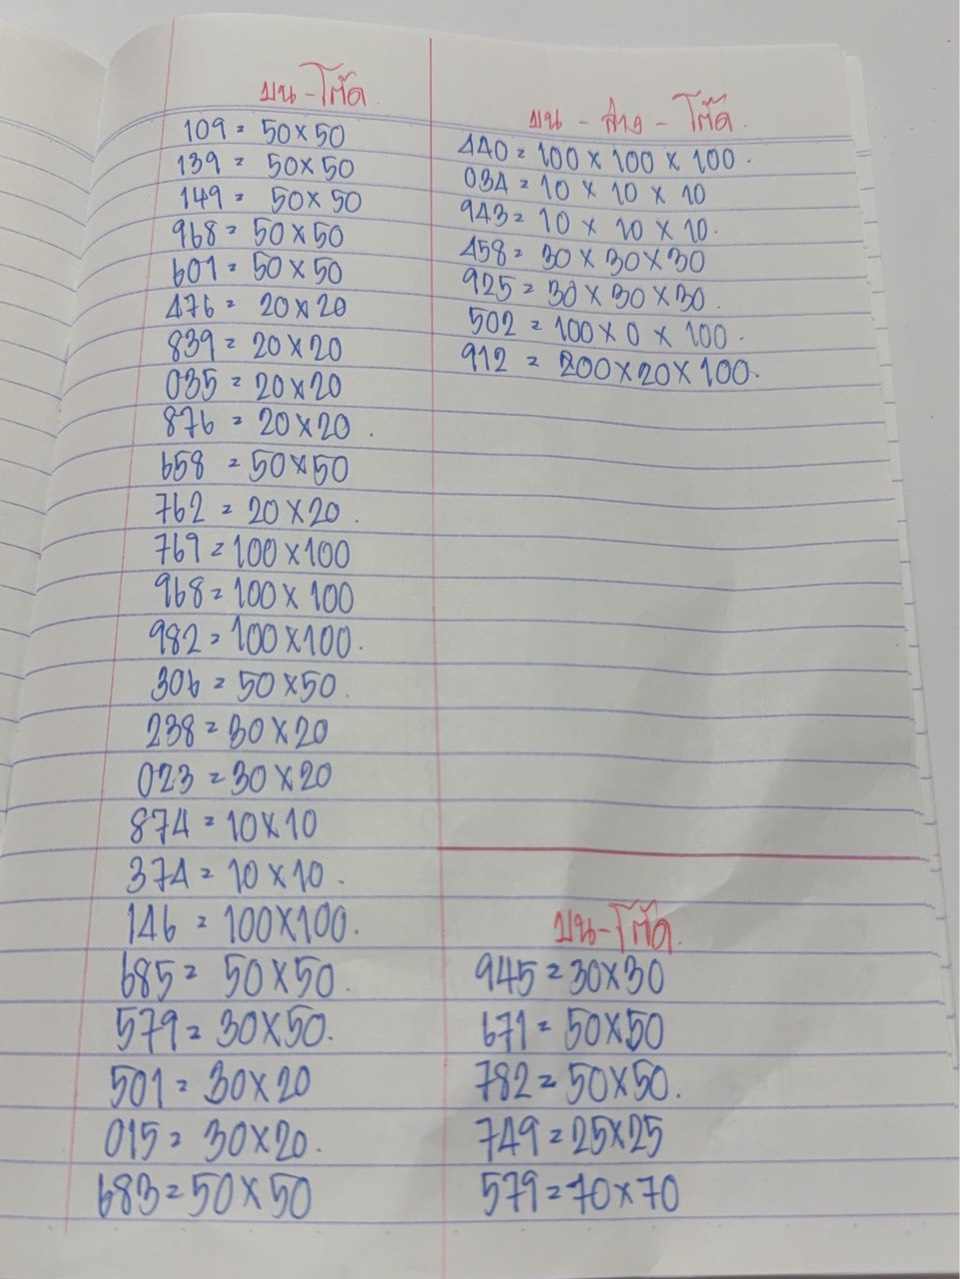 บน-โต๊ด
109 = 50×50
139 = 50×50
149 = 50×50
968 = 50×50
601 = 50×50
476 = 20×20
839 = 20×20
035 = 20×20
876 = 20×20.
658 = 50×50
762 = 20×20.
769 = 100×100
968 = 100×100
982 = 100×100.
306 = 50×50.
238 = 30×20
023 = 30×20
874 = 10×10
374 = 10×10.
146 = 100×100.
685 = 50×50.
579 = 30×50.
501 = 30×20
015 = 30×20.
683 = 50×50
บน - ล่าง - โต๊ด.
440 = 100 × 100 × 100.
034 = 10 × 10 × 10
943 = 10 × 10 × 10.
458 = 30 × 30 × 30
925 = 30 × 30 × 30.
502 = 100 × 0 × 100.
912 = 200×20×100.
บน-โต๊ด.
945 = 30×30
671 = 50×50
782 = 50×50.
749 = 25×25
579 = 70×70